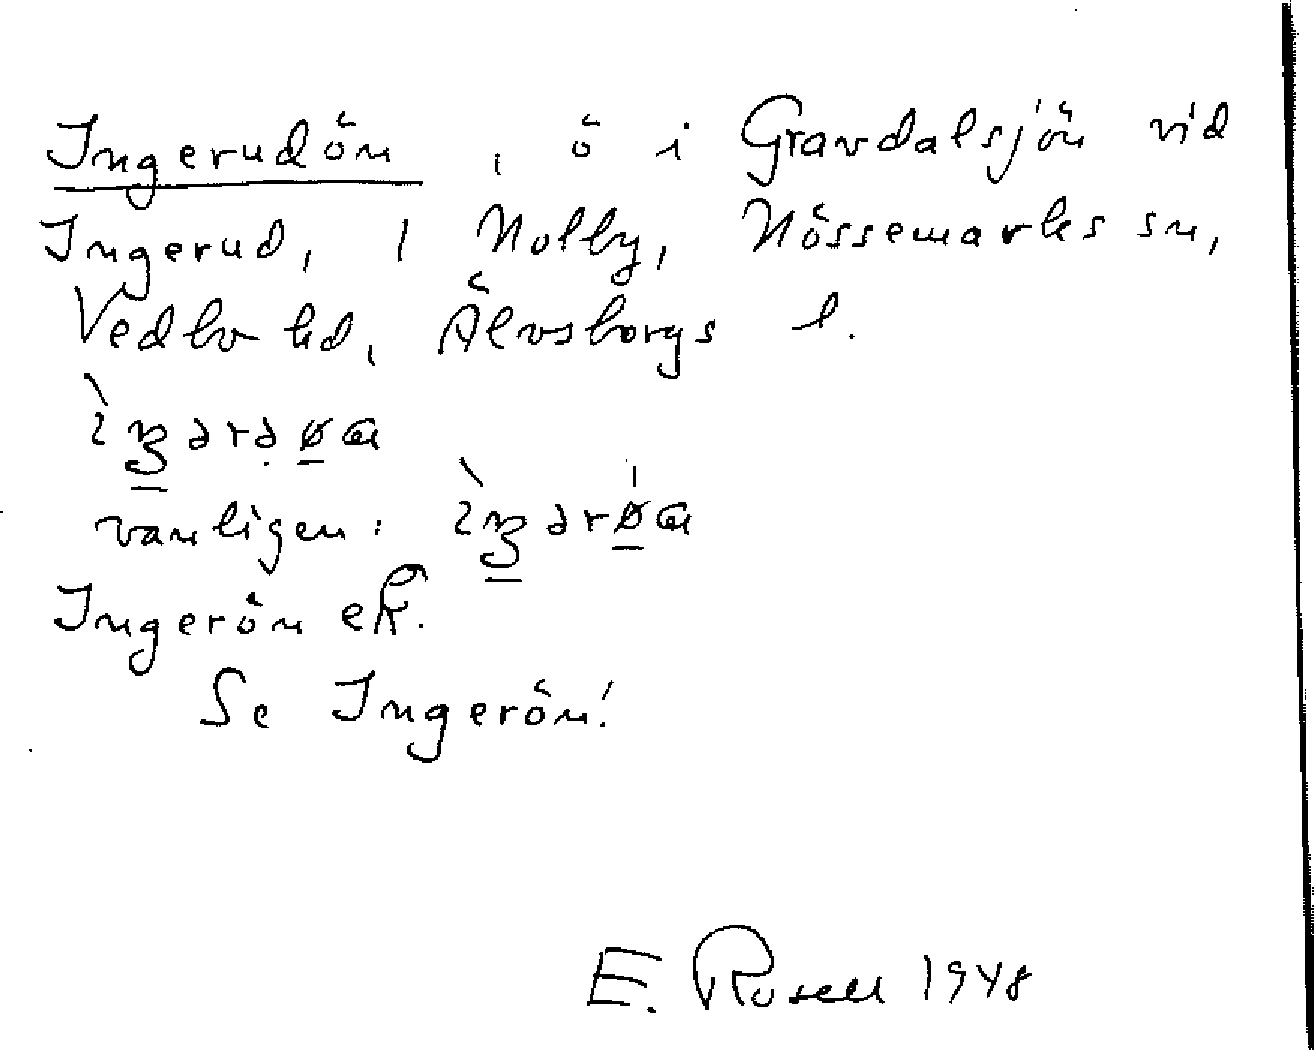 Ingerudön, ö i Gravdalsjön vid
Ingerud, 1 Nolby, Nössemarks sn,
Vedbo hd, Älvsborgs l.
vanligen:
Ingerön ek.
Se Ingerön!
E. Rosell 1948